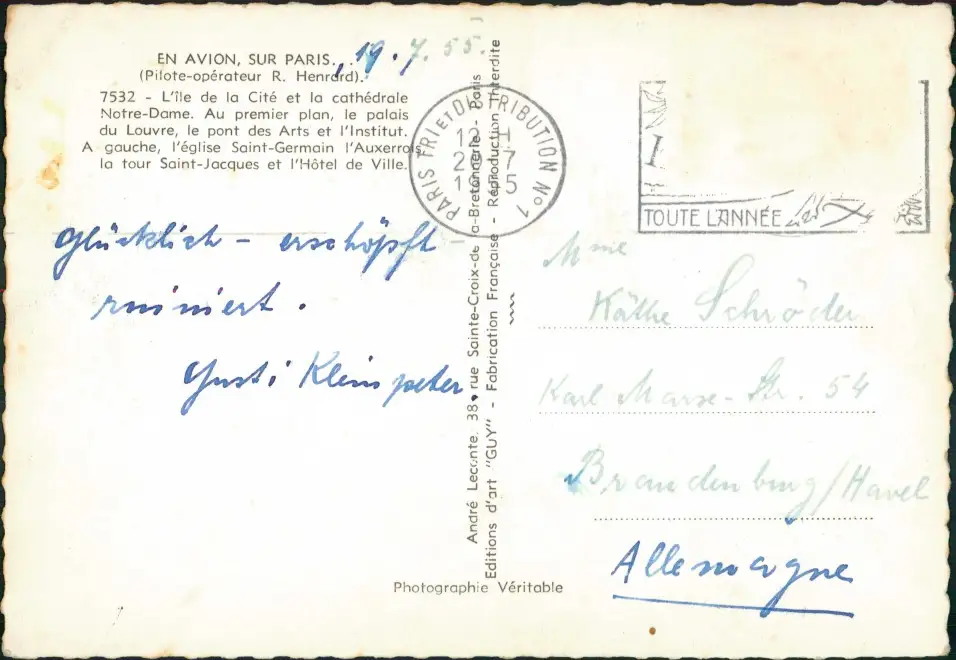 EN AVION, SUR PARIS. . .
(Pilote-opérateur R. Henrard).
7532 - L'île de la Cité et la cathédrale
Notre-Dame. Au premier plan, le palais
du Louvre, le pont des Arts et l'Institut.
A gauche, l'église Saint-Germain l'Auxerrois,
la tour Saint-Jacques et l'Hôtel de Ville.
19.7.55.
glücklich - erschöpft -
ruiniert.
Gusti Kleinpeter
André Leconte, 38, rue Sainte-Croix-de la-Bretonnerie - Paris
Editions d'art "GUY" - Fabrication Française - Reproduction Interdite
Photographie Véritable
PARIS TRI ET DISTRIBUTION No 1
12 H
TOUTE L'ANNÉE
Mme
Käthe Schröder
Karl Marx-Str. 54
Brandenburg/Havel
Allemagne